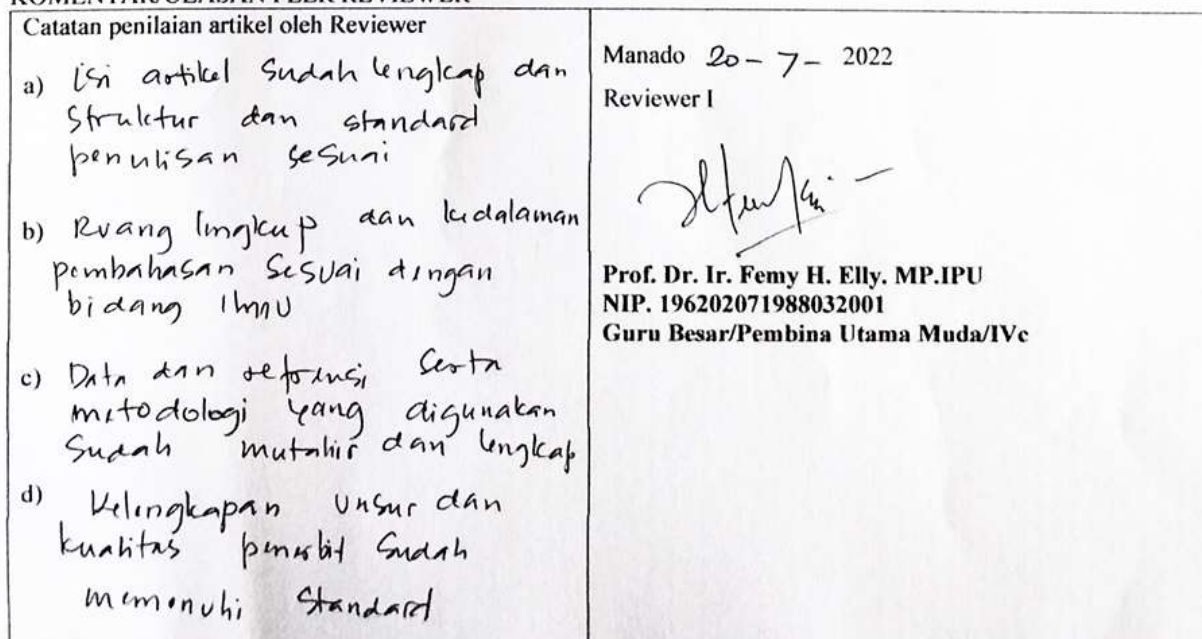 KOMENTAR/ULASAN PEER REVIEWER
Catatan penilaian artikel oleh Reviewer
a) Isi artikel sudah lengkap dan
struktur dan standard
penulisan sesuai
b) Ruang lingkup dan kedalaman
pembahasan sesuai dengan
bidang Ilmu
c) Data dan referensi, serta
metodologi yang digunakan
sudah mutahir dan lengkap
d) Kelengkapan unsur dan
kualitas penerbit sudah
memenuhi standard
Manado 20 - 7 - 2022
Reviewer I
Prof. Dr. Ir. Femy H. Elly. MP.IPU
NIP. 196202071988032001
Guru Besar/Pembina Utama Muda/IVc